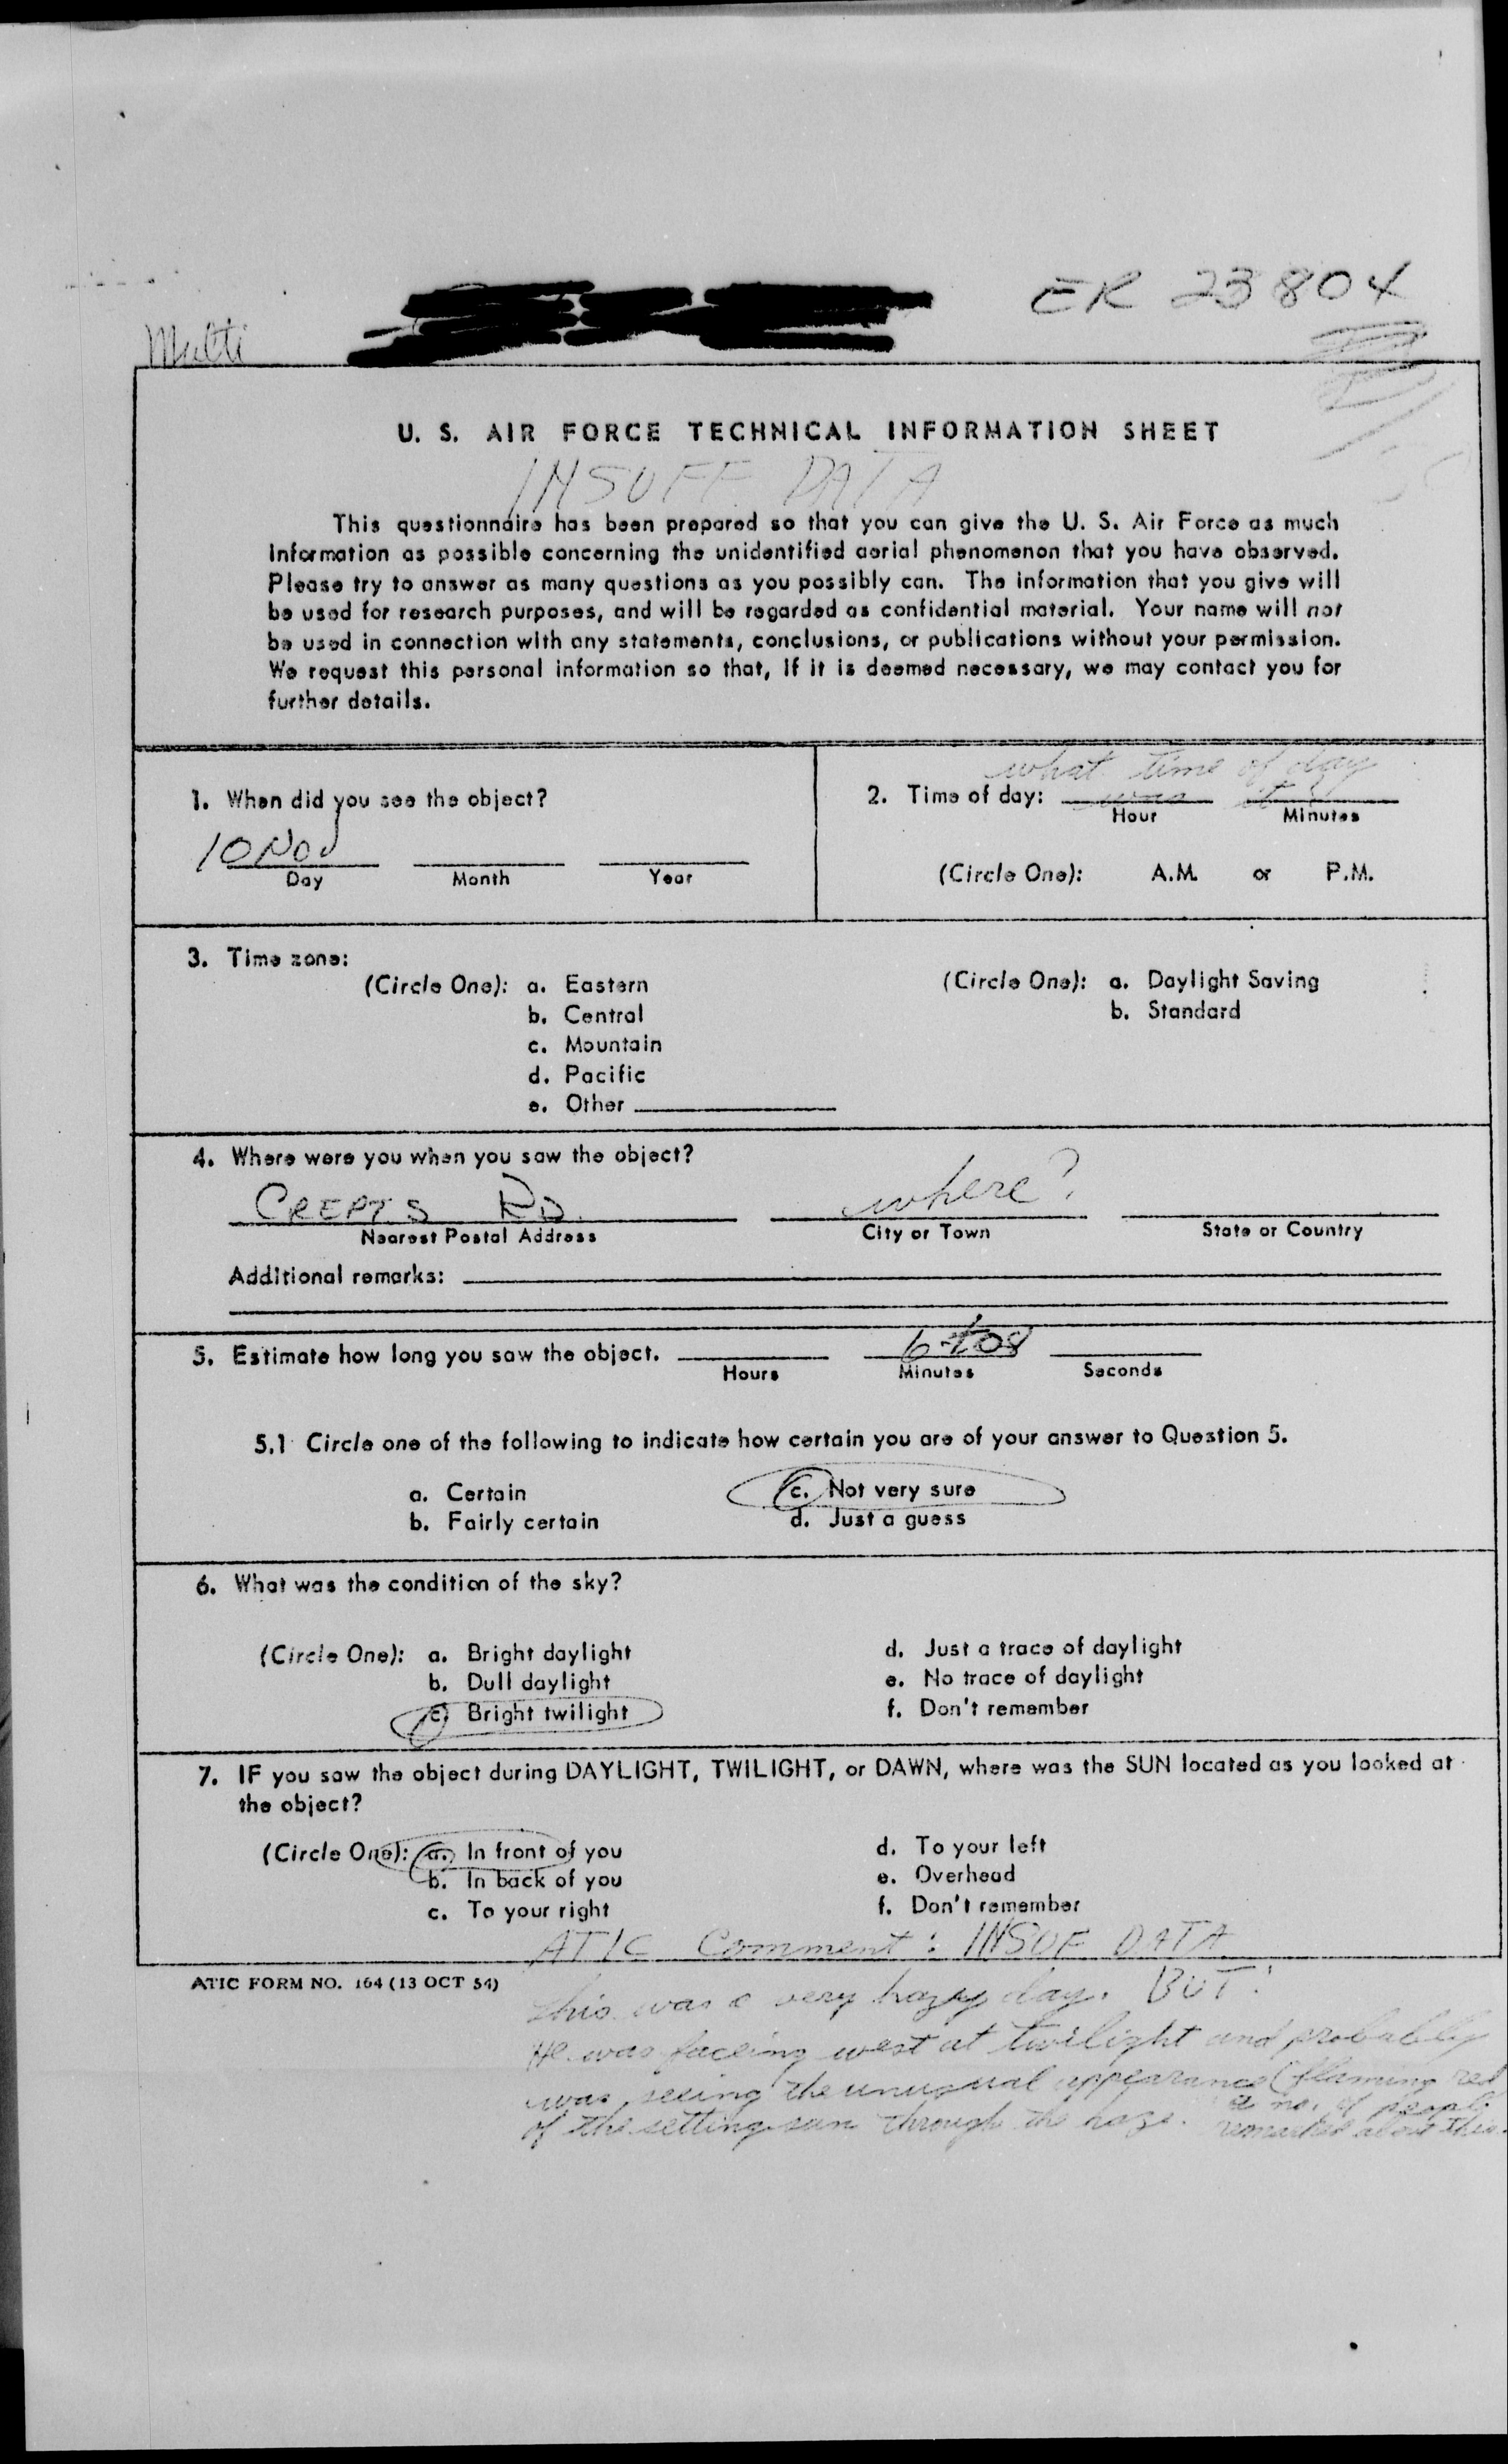 ER 23804
Multi
U. S. AIR FORCE TECHNICAL INFORMATION SHEET
INSUFF DATA
This questionnaire has been prepared so that you can give the U. S. Air Force as much
information as possible concerning the unidentified aerial phenomenon that you have observed.
Please try to answer as many questions as you possibly can. The information that you give will
be used for research purposes, and will be regarded as confidential material. Your name will not
be used in connection with any statements, conclusions, or publications without your permission.
We request this personal information so that, if it is deemed necessary, we may contact you for
further details.
1. When did you see the object?
10 Nov
Day Month Year
what time of day
2. Time of day: was it?
Hour Minutes
(Circle One): A.M. or P.M.
3. Time zone:
(Circle One): a. Eastern
b. Central
c. Mountain
d. Pacific
e. Other
(Circle One): a. Daylight Saving
b. Standard
4. Where were you when you saw the object?
CREPTS RD. where?
Nearest Postal Address City or Town State or Country
Additional remarks:
5. Estimate how long you saw the object. 6 to 8
Hours Minutes Seconds
5.1 Circle one of the following to indicate how certain you are of your answer to Question 5.
a. Certain c. Not very sure
b. Fairly certain d. Just a guess
6. What was the condition of the sky?
(Circle One): a. Bright daylight d. Just a trace of daylight
b. Dull daylight e. No trace of daylight
c. Bright twilight f. Don't remember
7. IF you saw the object during DAYLIGHT, TWILIGHT, or DAWN, where was the SUN located as you looked at
the object?
(Circle One): a. In front of you d. To your left
b. In back of you e. Overhead
c. To your right f. Don't remember
ATIC Comment: INSUF DATA
ATIC FORM NO. 164 (13 OCT 54)
This was a very hazy day. BUT:
He was facing west at twilight and probably
was seeing the unusual appearance (flaming red
of the setting sun through the haze. a no. of people
remarked about this.